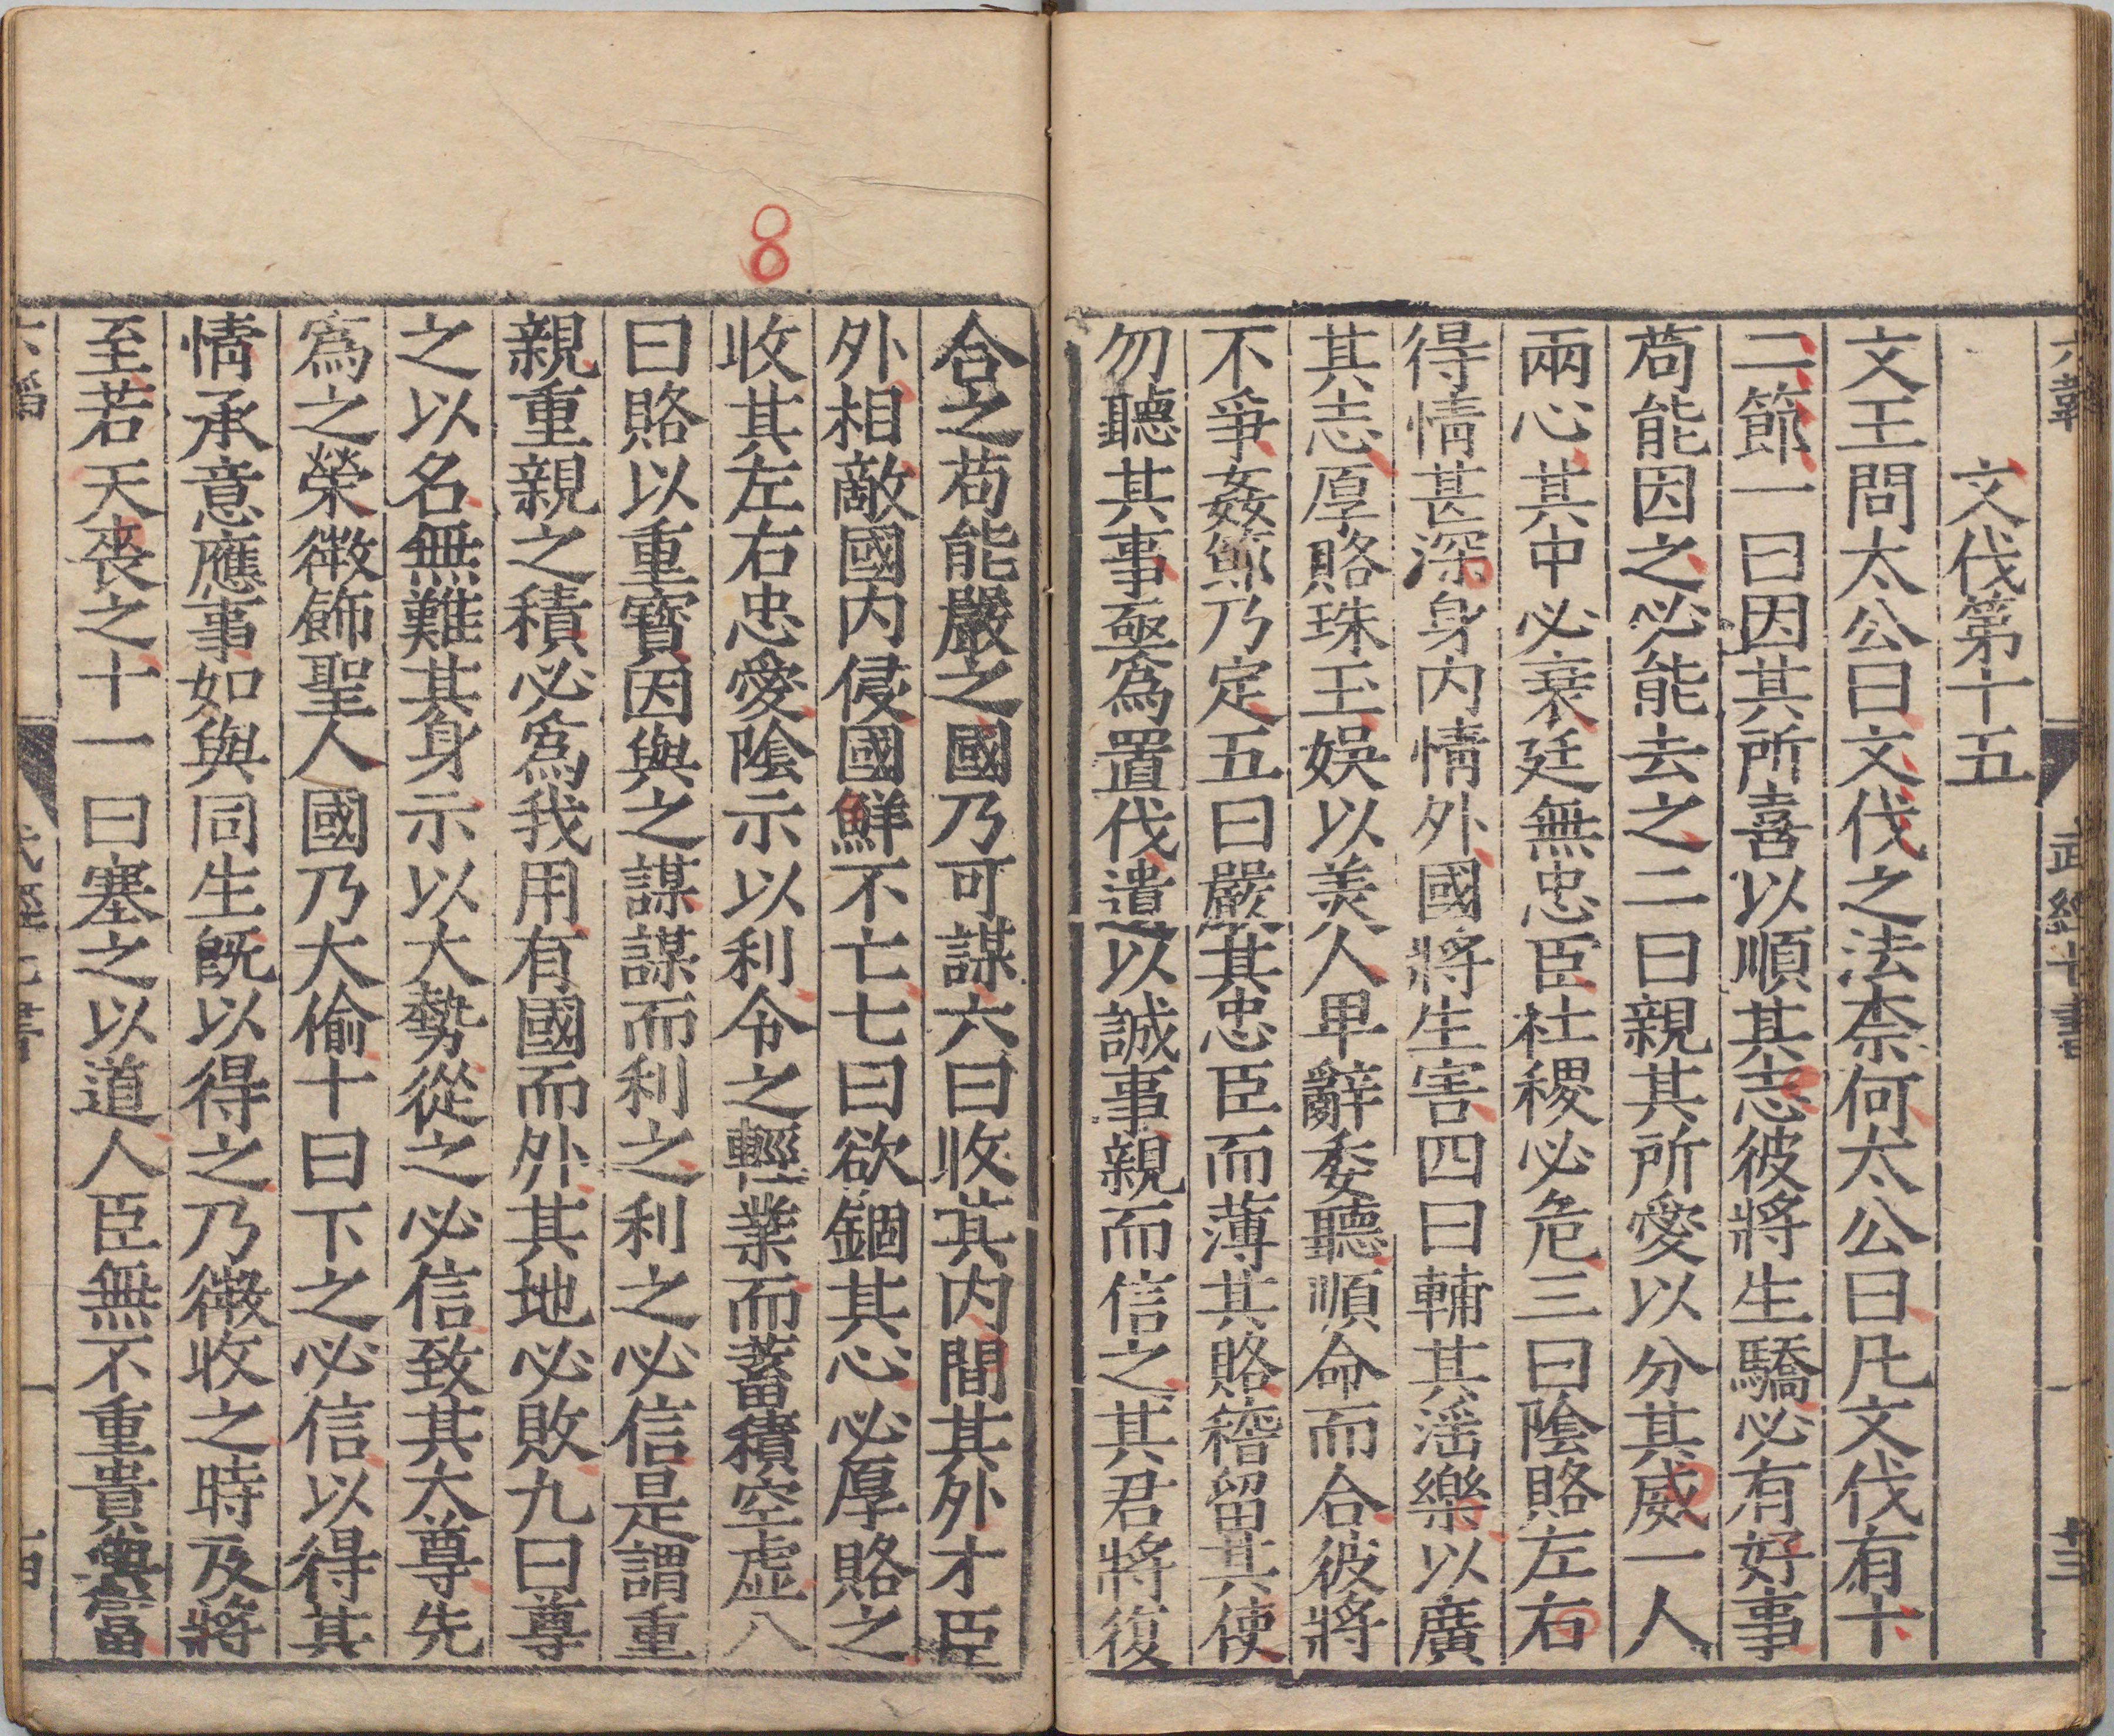 六韜 武經七書 廿三
文伐第十五
文王問太公曰文伐之法柰何太公曰凡文伐有十
二節一曰因其所喜以順其志彼將生驕必有好事
苟能因之必能去之二曰親其所愛以分其威一人
兩心其中必衰廷無忠臣社稷必危三曰隂賂左右
得情甚深身内情外國將生害四曰輔其淫樂以廣
其志厚賂珠玉娱以美人卑辭委聽順命而合彼將
不爭姦節乃定五曰嚴其忠臣而薄其賂稽留其使
勿聽其事亟爲置代遺以誠事親而信之其君將復
合之苟能嚴之國乃可謀六曰收其内間其外才臣
外相敵國内侵國鮮不亡七曰欲錮其心必厚賂之
收其左右忠愛隂示以利令之輕業而蓄積空虛八
曰賂以重寳因與之謀謀而利之利之必信是謂重
親重親之積必爲我用有國而外其地必敗九曰尊
之以名無難其身示以大勢從之必信致其大尊先
爲之榮微飾聖人國乃大偷十曰下之必信以得其
情承意應事如與同生旣以得之乃微收之時及將
至若天喪之十一曰塞之以道人臣無不重貴與富
8